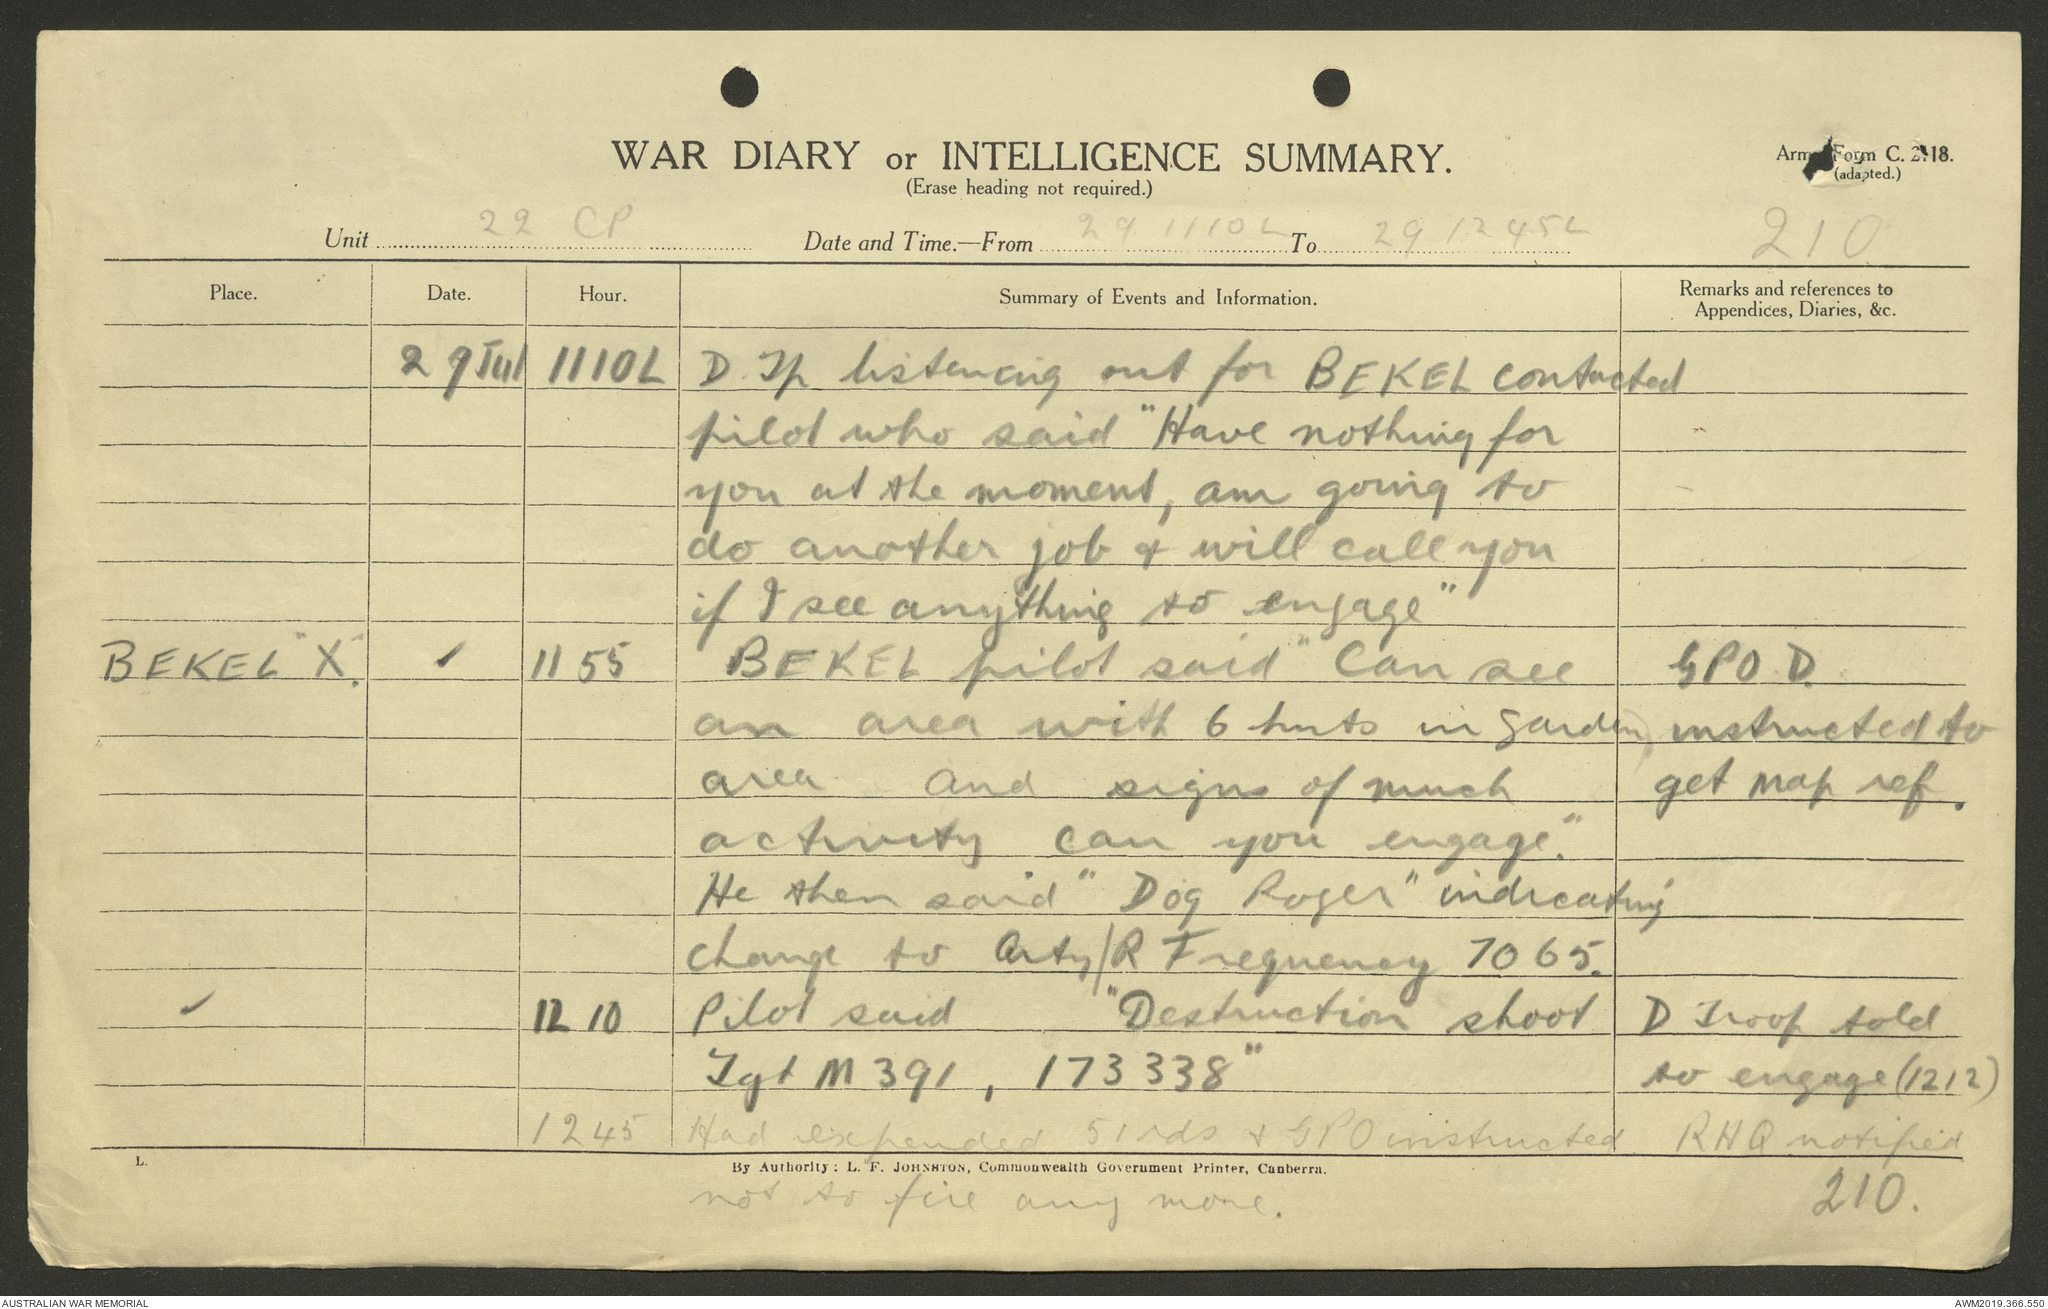 WAR DIARY or INTELLIGENCE SUMMARY.
(Erase heading not required.)
Army Form C. 2118.
(adapted.)
Unit 22 CP Date and Time.—From 29 1110L To 29 1245L
210
Place. Date. Hour. Summary of Events and Information. Remarks and references to Appendices, Diaries, &c.
29 Jul 1110L D Tp listening out for BEKEL contacted
pilot who said "Have nothing for
you at the moment, am going to
do another job & will call you
if I see anything to engage"
BEKEL "X". ✓ 1155 BEKEL pilot said "Can see GPO D.
an area with 6 huts in garden instructed to
area and signs of much get map ref.
activity can you engage."
He then said "Dog Roger" indicating
change to Arty/R Frequency 7065.
✓ 1210 Pilot said "Destruction shoot D Troop told
Tgt M391, 173338" to engage (1212)
1245 Had expended 51 rds & GPO instructed RHQ notified
L. By Authority: L. F. JOHNSTON, Commonwealth Government Printer, Canberra.
not to fire any more. 210.
AUSTRALIAN WAR MEMORIAL AWM2019.366.550